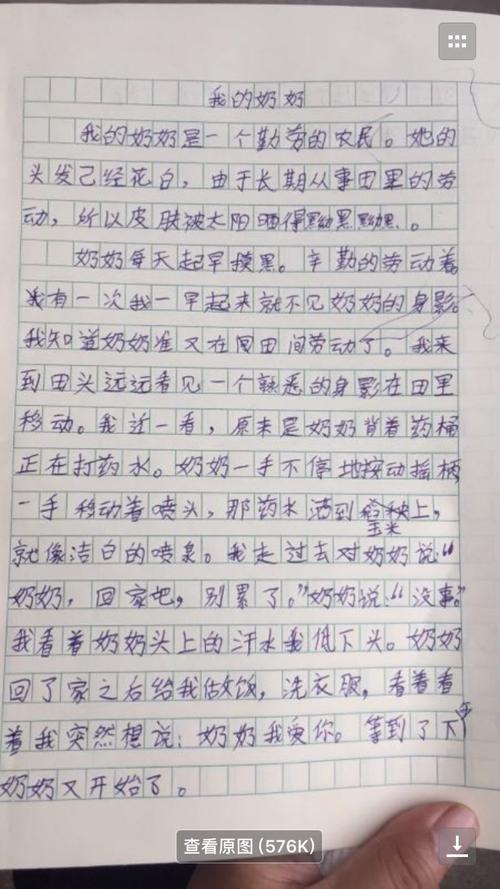 我的奶奶
我的奶奶是一个勤劳的农民。她的
头发已经花白，由于长期从事田里的劳
动，所以皮肤被太阳晒得黝黑黝黑。
奶奶每天起早摸黑。辛勤的劳动着。
我有一次我一早起来就不见奶奶的身影。
我知道奶奶准又在田间劳动了。我来
到田头远远看见一个熟悉的身影在田里
移动。我近一看，原来是奶奶背着药桶
正在打药水。奶奶一手不停地按动摇柄
一手移动着喷头，那药水洒到秧上，
玉米
就像洁白的喷泉。我走过去对奶奶说：“
奶奶，回家吧，别累了。”奶奶说：“没事。”
我看着奶奶头上的汗水我低下头。奶奶
回了家之后给我做饭，洗衣服，看着看
着我突然想说：奶奶我爱你。等到了下午
奶奶又开始了。
查看原图 (576K)